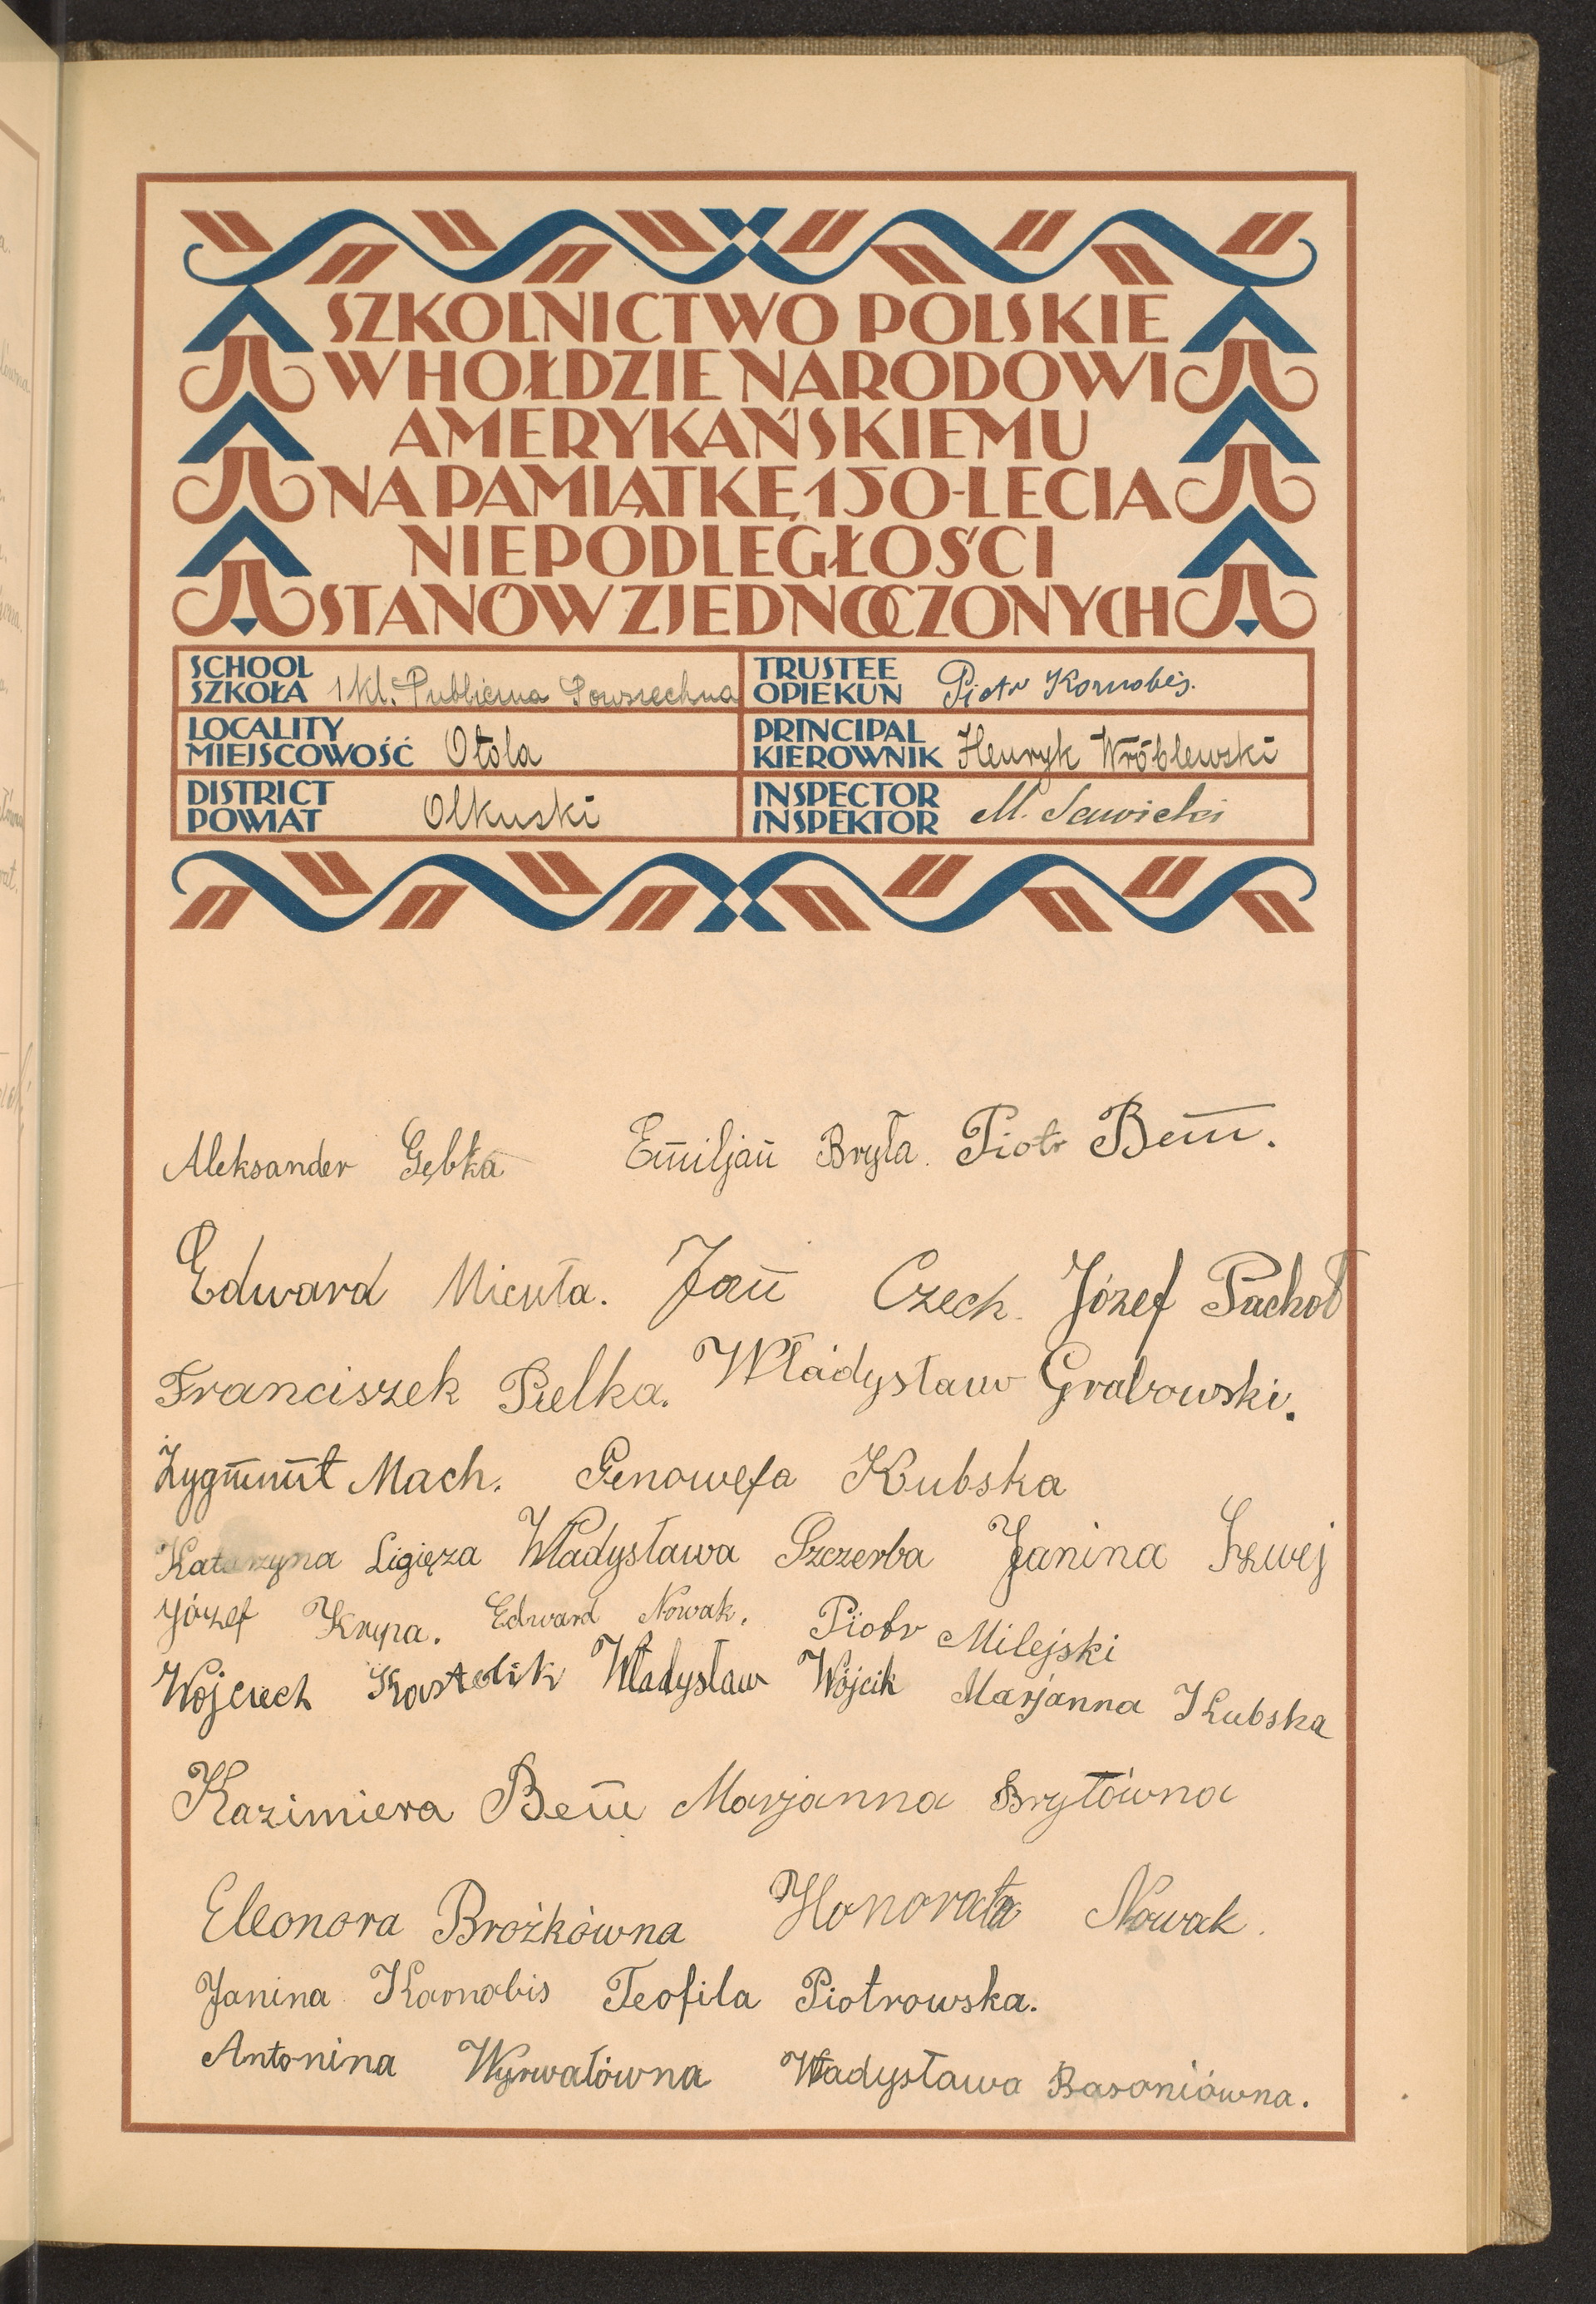 SZKOLNICTWO POLSKIE
W HOŁDZIE NARODOWI
AMERYKAŃSKIEMU
NA PAMIĄTKĘ 150-LECIA
NIEPODLEGŁOŚCI
STANÓW ZJEDNOCZONYCH
SCHOOL
SZKOŁA 1 kl. Publiczna Powszechna
TRUSTEE
OPIEKUN Piotr Kornobis.
LOCALITY
MIEJSCOWOŚĆ Otola
PRINCIPAL
KIEROWNIK Henryk Wróblewski
DISTRICT
POWIAT Olkuski
INSPECTOR
INSPEKTOR M. Sawicki
Aleksander Gębka Emiljan Bryła. Piotr Bem.
Edward Micuła. Jan Czech. Józef Pachoł
Franciszek Pielka. Władysław Grabowski.
Zygmunt Mach. Genowefa Kubska
Katarzyna Ligięza Władysława Szczerba Janina Szwej
Józef Krupa. Edward Nowak. Piotr Milejski
Wojciech Kastelik Władysław Wójcik Marjanna Kubska
Kazimiera Bem Marjanna Bryłówna
Eleonora Brożkówna Honorata Nowak.
Janina Kornobis Teofila Piotrowska.
Antonina Wyrwałówna Władysława Basoniówna.